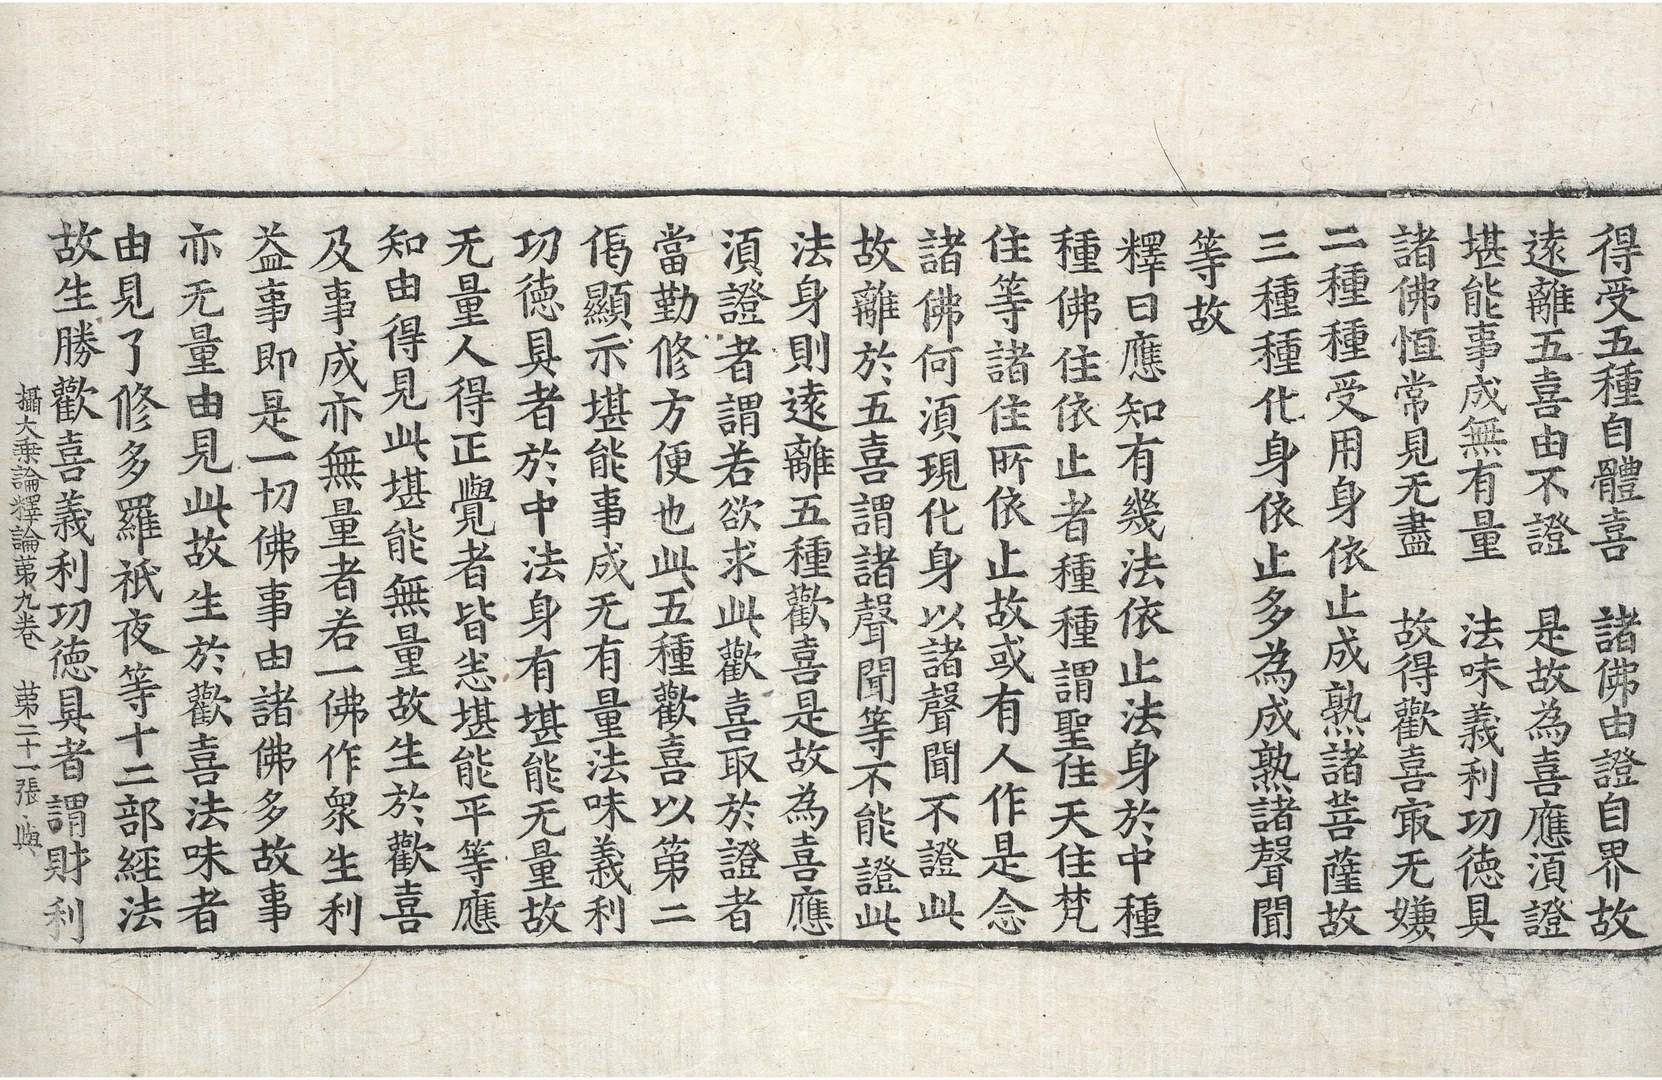 得受五種自體喜　諸佛由證自界故
遠離五喜由不證　是故為喜應湏證
堪能事成無有量　法味義利功徳具
諸佛恒常見无盡　故得歡喜㝡无嫌
二種種受用身依止成熟諸菩薩故
三種種化身依止多為成熟諸聲聞
等故
釋曰應知有幾法依止法身於中種
種佛住依止者種種謂聖住天住梵
住等諸住所依止故或有人作是念
諸佛何湏現化身以諸聲聞不證此
故離於五喜謂諸聲聞等不能證此
法身則遠離五種歡喜是故為喜應
湏證者謂若欲求此歡喜取於證者
當勤修方便也此五種歡喜以第二
偈顯示堪能事成无有量法味義利
功徳具者於中法身有堪能无量故
无量人得正覺者皆悉堪能平等應
知由得見此堪能無量故生於歡喜
及事成亦無量者若一佛作衆生利
益事即是一切佛事由諸佛多故事
亦无量由見此故生於歡喜法味者
由見了修多羅祇夜等十二部經法
故生勝歡喜義利功徳具者謂財利
攝大乗論釋論第九卷　第二十一張　與